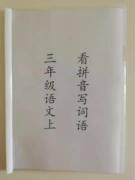 看拼音写词语
三年级语文上